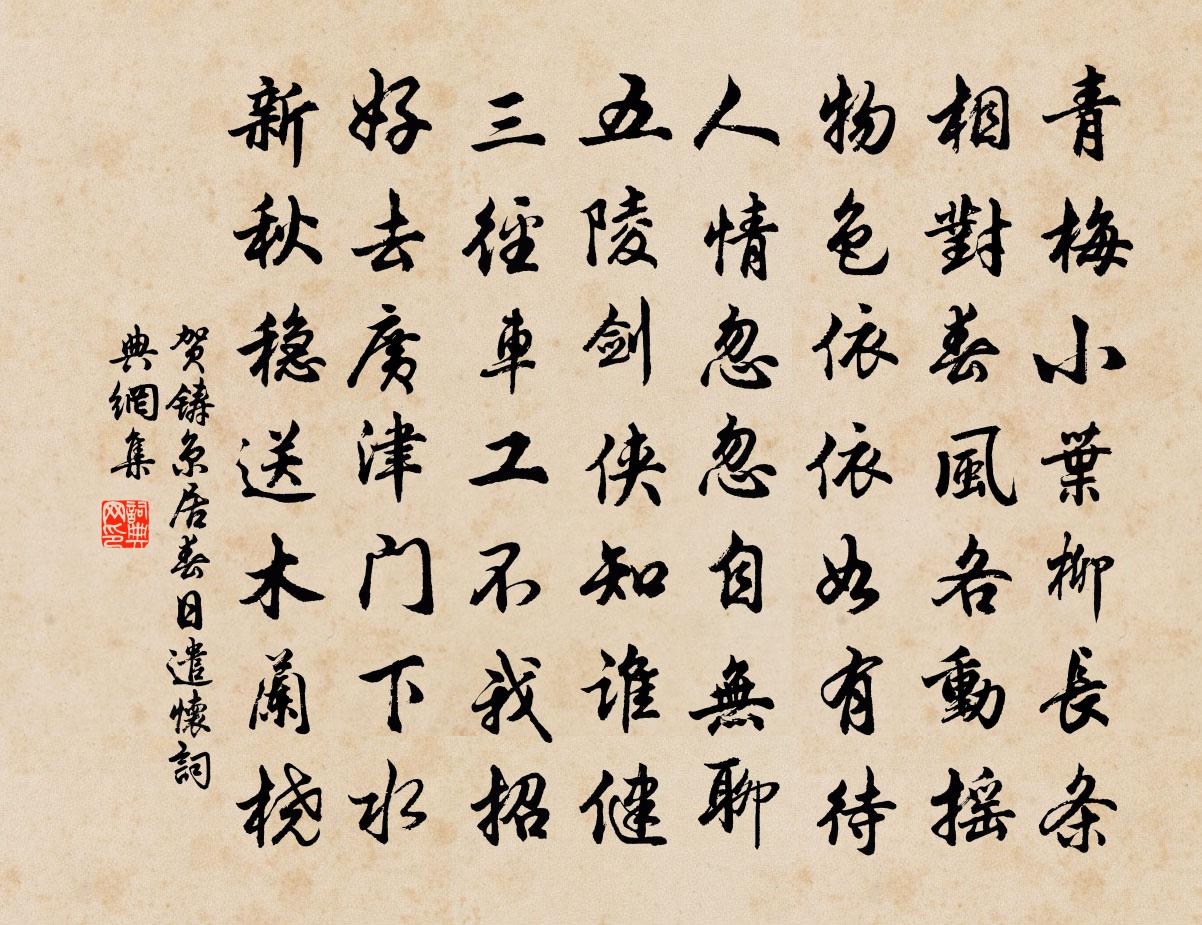 青梅小葉柳長条
相對春風各動搖
物色依依如有待
人情忽忽自無聊
五陵剑侠知誰健
三徑車工不我招
好去廣津門下水
新秋稳送木蘭桡
贺鑄京居春日遣懷詞
典網集
詞典
网印